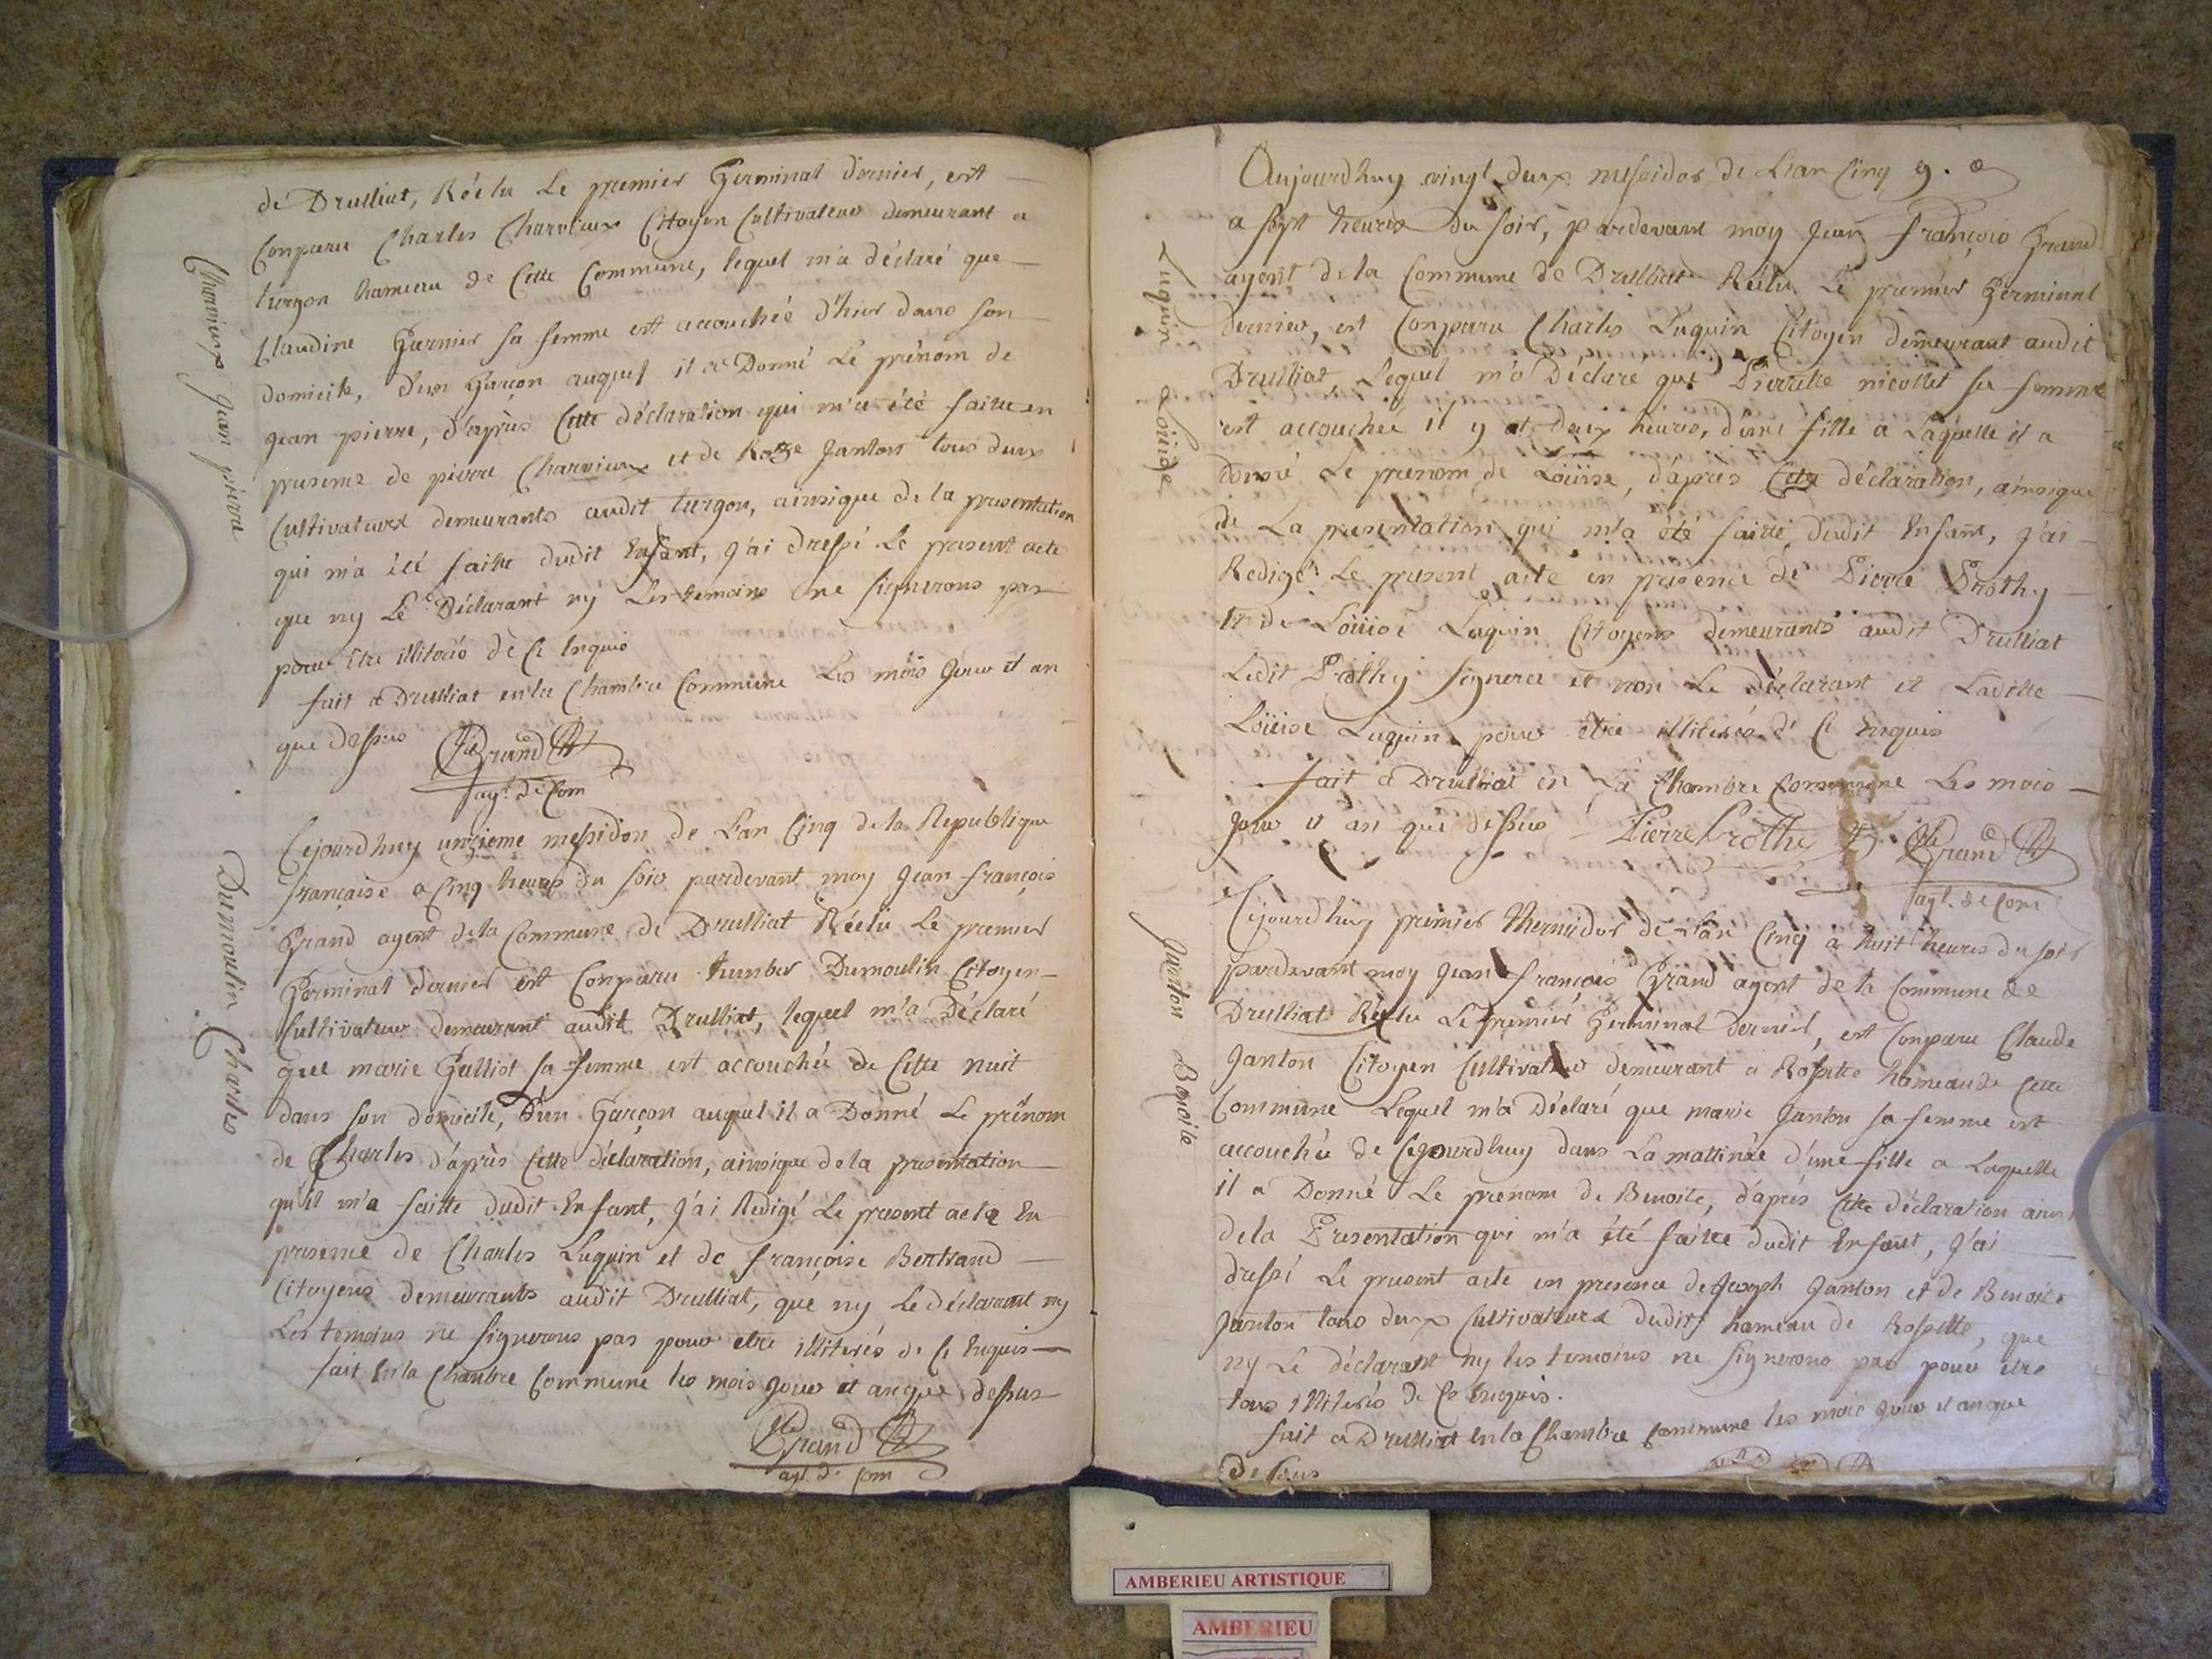 de Drulliat, Réélu Le premier Germinal dernier, est
Comparu Charles Charvieux Citoyen Cultivateur demeurant a
turgon hameau de Cette Commune, lequel m'a déclaré que
Claudine Garnier sa femme est accouchée d'hier dans son
domicile, d'un Garçon auquel il a Donné Le prénom de
jean pierre, d'après Cette déclaration qui m'a été faitte en
presence de pierre Charvieux et de Janton tous deux
Cultivateurs demeurants audit turgon, ainsique de la presentation
qui m'a été faitte dudit Enfant, j'ai dressé Le present acte
que ny Le Déclarant ny Les temoins ne signerons pas
pour Etre illiterés de Ce Enquis
fait a Drulliat en la Chambre Commune Les mois jour et an
que dessus Grand
agt. de Com
Charvieux jean pierre
Cejourdhuy unzieme messidor de L'an Cinq de la Republique
française a Cinq heures du soir pardevant moy jean françois
Grand agent de la Commune de Drulliat Réélu Le premier
Germinal dernier est Comparu humber Dumoulin Citoyen
Cultivateur demeurant audit Drulliat, lequel m'a Déclaré
que marie Galliot sa femme est accouchée de Cette nuit
dans son domicile, d'un Garçon auquel il a Donné Le prénom
de Charles d'après Cette déclaration, ainsique de la presentation
qu'il m'a faitte dudit Enfant, j'ai Redigé Le present acte En
presence de Charles Luquin et de françoise Bertrand
Citoyens demeurants audit Drulliat, que ny Le déclarant ny
Les temoins ne signerons pas pour etre illiterés de Ce Enquis
fait En la Chambre Commune les mois jour et an que dessus
Grand
agt. de Com
Dumoulin Charles
Aujourdhuy vingt deux messidor de L'an Cinq
a sept heures du soir, pardevant moy jean françois Grand
agent de la Commune de Drulliat Réélu Le premier Germinal
dernier, est Comparu Charles Luquin Citoyen demeurant audit
Drulliat, Lequel m'a Déclaré que Pierrette nicollet sa femme
est accouchée il y at deux heures, d'une fille a Laquelle il a
donné Le prenom de Loüise, d'après Cette déclaration, ainsique
de La presentation qui m'a été faitte dudit Enfant, j'ai
Redigé Le present acte en presence de Pierre Prothy
et de Loüise Luquin Citoyens demeurants audit Drulliat
Ledit Prothy signera et non Le déclarant et Laditte
Loüise Luquin pour etre illiterés de Ce Enquis
fait a Drulliat en La Chambre Commune Les mois
jour et an que dessus Pierre Prothy Grand
agt. de Com
Luquin Loüise
Cejourdhuy premier thermidor de L'an Cinq a huit heures du soir
pardevant moy jean françois Grand agent de la Commune de
Drulliat Réélu Le premier Germinal dernier, est Comparu Claude
janton Citoyen Cultivateur demeurant a Rossette hameau de Cette
Commune Lequel m'a Déclaré que marie janton sa femme est
accouchée de Cejourdhuy dans La mattinée d'une fille a Laquelle
il a Donné Le prénom de Benoite, d'après Cette déclaration ainsi
de la Presentation qui m'a été faitte dudit Enfant, j'ai
dressé Le present acte en presence de joseph janton et de Benoite
janton tous deux Cultivateurs dudit hameau de Rossette, que
ny Le déclarant ny les temoins ne signerons pas pour etre
tous illiterés de Ce Enquis.
fait a Drulliat En la Chambre Commune les mois jour et an que
dessus
janton Benoite
AMBERIEU ARTISTIQUE
AMBERIEU